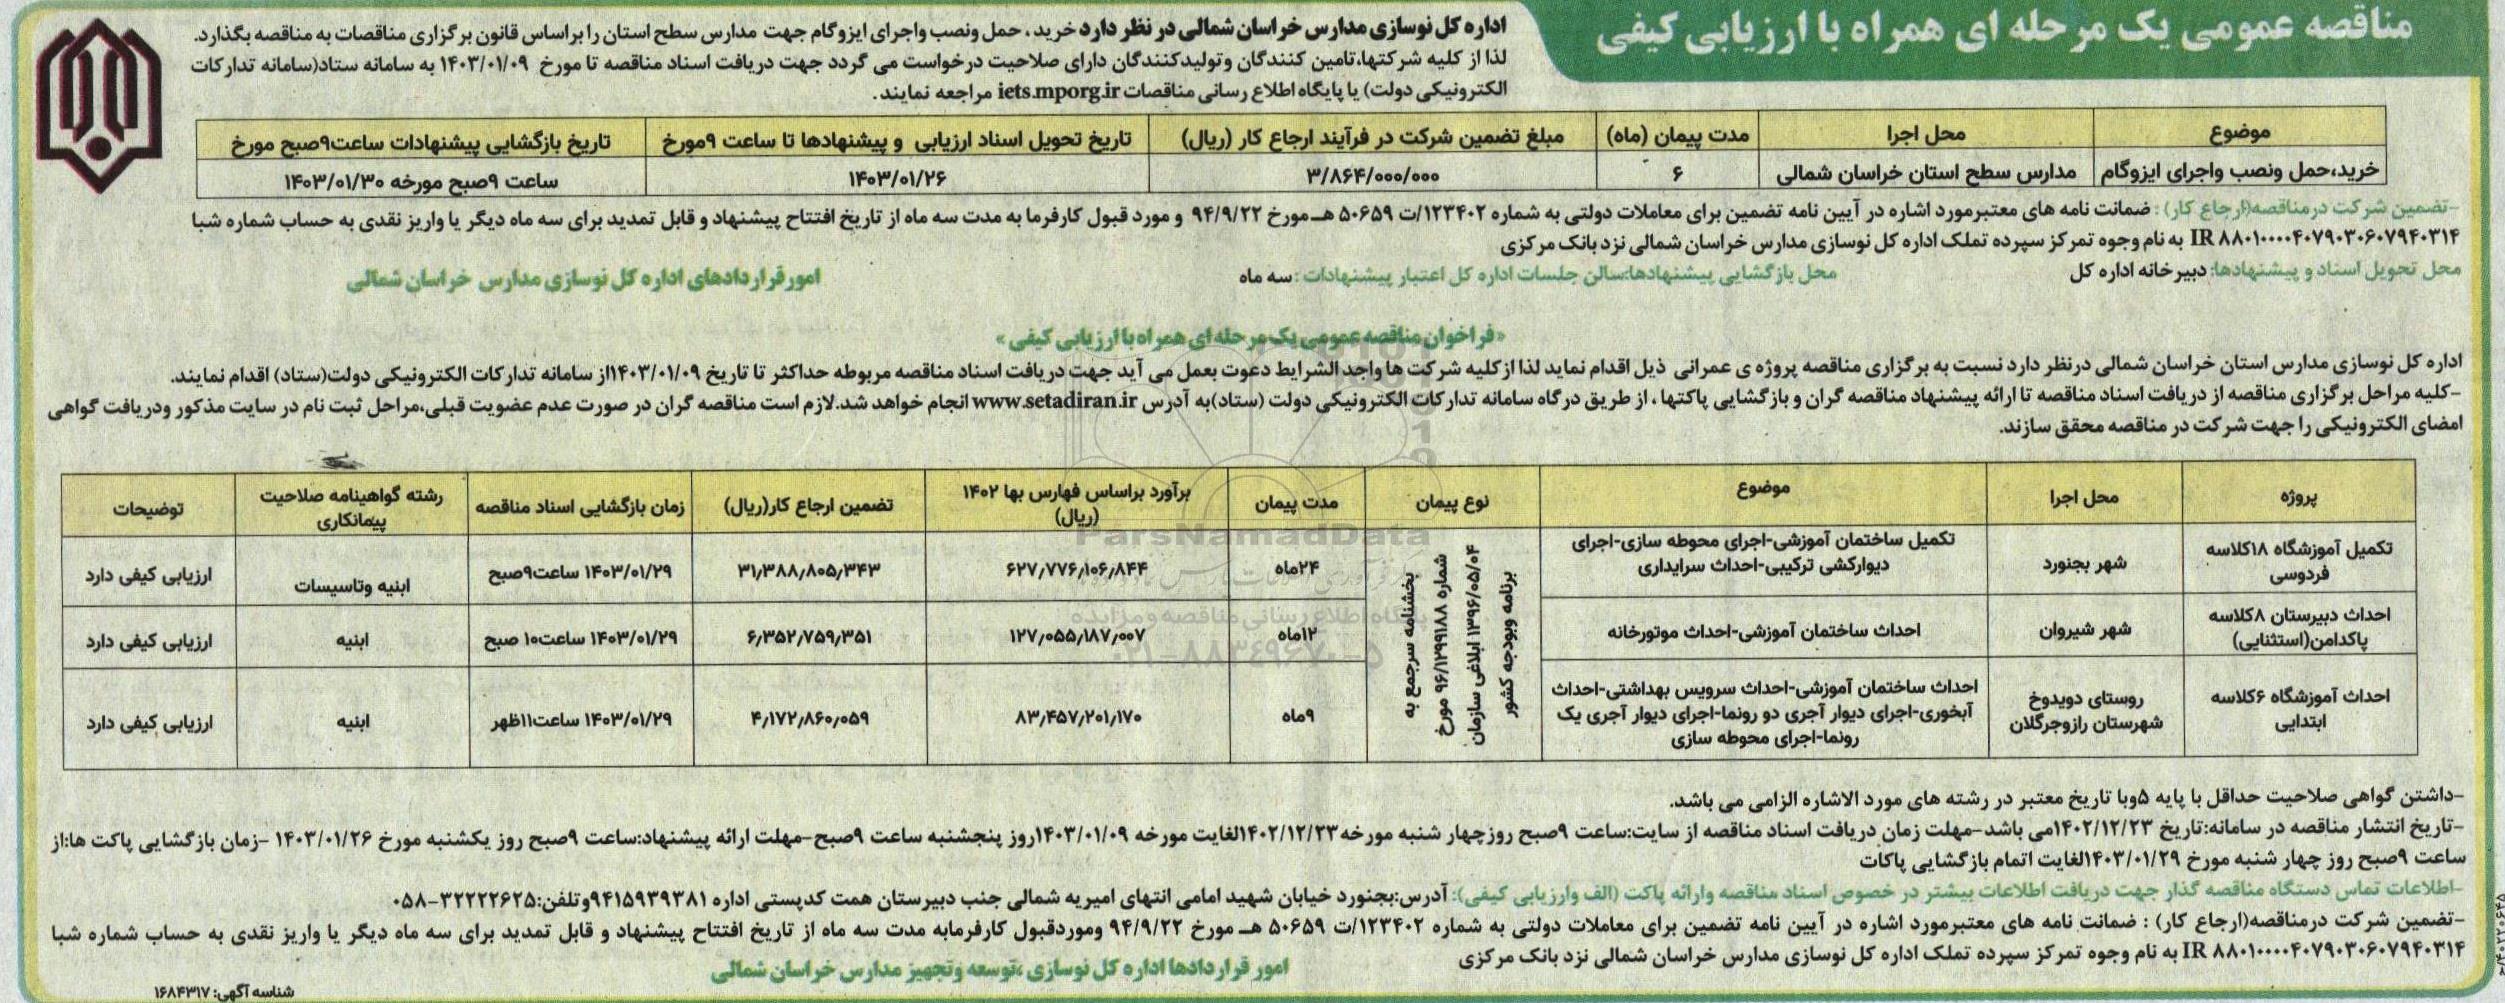 مناقصه عمومی یک مرحله ای همراه با ارزیابی کیفی
اداره کل نوسازی مدارس خراسان شمالی در نظر دارد خرید، حمل ونصب واجرای ایزوگام جهت مدارس سطح استان را براساس قانون برگزاری مناقصات به مناقصه بگذارد.
لذا از کلیه شرکتها،تامین کنندگان وتولیدکنندگان دارای صلاحیت درخواست می گردد جهت دریافت اسناد مناقصه تا مورخ ۱۴۰۳/۰۱/۰۹ به سامانه ستاد(سامانه تدارکات
الکترونیکی دولت) یا پایگاه اطلاع رسانی مناقصات iets.mporg.ir مراجعه نمایند.
موضوع | محل اجرا | مدت پیمان (ماه) | مبلغ تضمین شرکت در فرآیند ارجاع کار (ریال) | تاریخ تحویل اسناد ارزیابی و پیشنهادها تا ساعت ۹مورخ | تاریخ بازگشایی پیشنهادات ساعت۹صبح مورخ
خرید،حمل ونصب واجرای ایزوگام | مدارس سطح استان خراسان شمالی | ۶ | ۳/۸۶۴/۰۰۰/۰۰۰ | ۱۴۰۳/۰۱/۲۶ | ساعت ۹صبح مورخه ۱۴۰۳/۰۱/۳۰
-تضمین شرکت درمناقصه(ارجاع کار) : ضمانت نامه های معتبرمورد اشاره در آیین نامه تضمین برای معاملات دولتی به شماره ۱۲۳۴۰۲/ت ۵۰۶۵۹ هـ مورخ ۹۴/۹/۲۲ و مورد قبول کارفرما به مدت سه ماه از تاریخ افتتاح پیشنهاد و قابل تمدید برای سه ماه دیگر یا واریز نقدی به حساب شماره شبا
IR ۸۸۰۱۰۰۰۰۴۰۷۹۰۳۰۶۰۷۹۴۰۳۱۴ به نام وجوه تمرکز سپرده تملک اداره کل نوسازی مدارس خراسان شمالی نزد بانک مرکزی
محل تحویل اسناد و پیشنهادها: دبیرخانه اداره کل محل بازگشایی پیشنهادها:سالن جلسات اداره کل اعتبار پیشنهادات : سه ماه امورقراردادهای اداره کل نوسازی مدارس خراسان شمالی
«فراخوان مناقصه عمومی یک مرحله ای همراه با ارزیابی کیفی»
اداره کل نوسازی مدارس استان خراسان شمالی درنظر دارد نسبت به برگزاری مناقصه پروژه ی عمرانی ذیل اقدام نماید لذا ازکلیه شرکت ها واجد الشرایط دعوت بعمل می آید جهت دریافت اسناد مناقصه مربوطه حداکثر تا تاریخ ۱۴۰۳/۰۱/۰۹از سامانه تدارکات الکترونیکی دولت(ستاد) اقدام نمایند.
-کلیه مراحل برگزاری مناقصه از دریافت اسناد مناقصه تا ارائه پیشنهاد مناقصه گران و بازگشایی پاکتها ، از طریق درگاه سامانه تدارکات الکترونیکی دولت (ستاد)به آدرس www.setadiran.ir انجام خواهد شد.لازم است مناقصه گران در صورت عدم عضویت قبلی،مراحل ثبت نام در سایت مذکور ودریافت گواهی
امضای الکترونیکی را جهت شرکت در مناقصه محقق سازند.
پروژه | محل اجرا | موضوع | نوع پیمان | مدت پیمان | برآورد براساس فهارس بها ۱۴۰۲ (ریال) | تضمین ارجاع کار(ریال) | زمان بازگشایی اسناد مناقصه | رشته گواهینامه صلاحیت پیمانکاری | توضیحات
تکمیل آموزشگاه ۱۸کلاسه فردوسی | شهر بجنورد | تکمیل ساختمان آموزشی-اجرای محوطه سازی-اجرای دیوارکشی ترکیبی-احداث سرایداری | بخشنامه سرجمع به شماره ۹۶/۱۲۹۹۱۸۸ مورخ ۱۳۹۶/۰۵/۰۴ ابلاغی سازمان برنامه وبودجه کشور | ۲۴ماه | ۶۲۷٫۷۷۶٫۱۰۶٫۸۴۴ | ۳۱٫۳۸۸٫۸۰۵٫۳۴۳ | ۱۴۰۳/۰۱/۲۹ ساعت۹صبح | ابنیه وتاسیسات | ارزیابی کیفی دارد
احداث دبیرستان ۸کلاسه پاکدامن(استثنایی) | شهر شیروان | احداث ساختمان آموزشی-احداث موتورخانه | ۱۲ماه | ۱۲۷٫۰۵۵٫۱۸۷٫۰۰۷ | ۶٫۳۵۲٫۷۵۹٫۳۵۱ | ۱۴۰۳/۰۱/۲۹ ساعت۱۰ صبح | ابنیه | ارزیابی کیفی دارد
احداث آموزشگاه ۶کلاسه ابتدایی | روستای دویدوخ شهرستان رازوجرگلان | احداث ساختمان آموزشی-احداث سرویس بهداشتی-احداث آبخوری-اجرای دیوار آجری دو رونما-اجرای دیوار آجری یک رونما-اجرای محوطه سازی | ۹ماه | ۸۳٫۴۵۷٫۲۰۱٫۱۷۰ | ۴٫۱۷۲٫۸۶۰٫۰۵۹ | ۱۴۰۳/۰۱/۲۹ ساعت۱۱ظهر | ابنیه | ارزیابی کیفی دارد
ParsNamadData
پایگاه اطلاع رسانی مناقصه و مزایده
۰۲۱-۸۸۳۴۹۶۷۰-۵
-داشتن گواهی صلاحیت حداقل با پایه ۵وبا تاریخ معتبر در رشته های مورد الاشاره الزامی می باشد.
-تاریخ انتشار مناقصه در سامانه:تاریخ ۱۴۰۲/۱۲/۲۳می باشد-مهلت زمان دریافت اسناد مناقصه از سایت:ساعت ۹صبح روزچهار شنبه مورخه۱۴۰۲/۱۲/۲۳لغایت مورخه ۱۴۰۳/۰۱/۰۹روز پنجشنبه ساعت ۹صبح-مهلت ارائه پیشنهاد:ساعت ۹صبح روز یکشنبه مورخ ۱۴۰۳/۰۱/۲۶ -زمان بازگشایی پاکت ها:از
ساعت ۹صبح روز چهار شنبه مورخ ۱۴۰۳/۰۱/۲۹لغایت اتمام بازگشایی پاکات
-اطلاعات تماس دستگاه مناقصه گذار جهت دریافت اطلاعات بیشتر در خصوص اسناد مناقصه وارائه پاکت (الف وارزیابی کیفی): آدرس:بجنورد خیابان شهید امامی انتهای امیریه شمالی جنب دبیرستان همت کدپستی اداره ۹۴۱۵۹۳۹۳۸۱وتلفن:۳۲۲۲۲۶۲۵-۰۵۸
-تضمین شرکت درمناقصه(ارجاع کار) : ضمانت نامه های معتبرمورد اشاره در آیین نامه تضمین برای معاملات دولتی به شماره ۱۲۳۴۰۲/ت ۵۰۶۵۹ هـ مورخ ۹۴/۹/۲۲ وموردقبول کارفرمابه مدت سه ماه از تاریخ افتتاح پیشنهاد و قابل تمدید برای سه ماه دیگر یا واریز نقدی به حساب شماره شبا
IR ۸۸۰۱۰۰۰۰۴۰۷۹۰۳۰۶۰۷۹۴۰۳۱۴ به نام وجوه تمرکز سپرده تملک اداره کل نوسازی مدارس خراسان شمالی نزد بانک مرکزی
امور قراردادها اداره کل نوسازی ،توسعه وتجهیز مدارس خراسان شمالی
شناسه آگهی: ۱۶۸۴۳۱۷